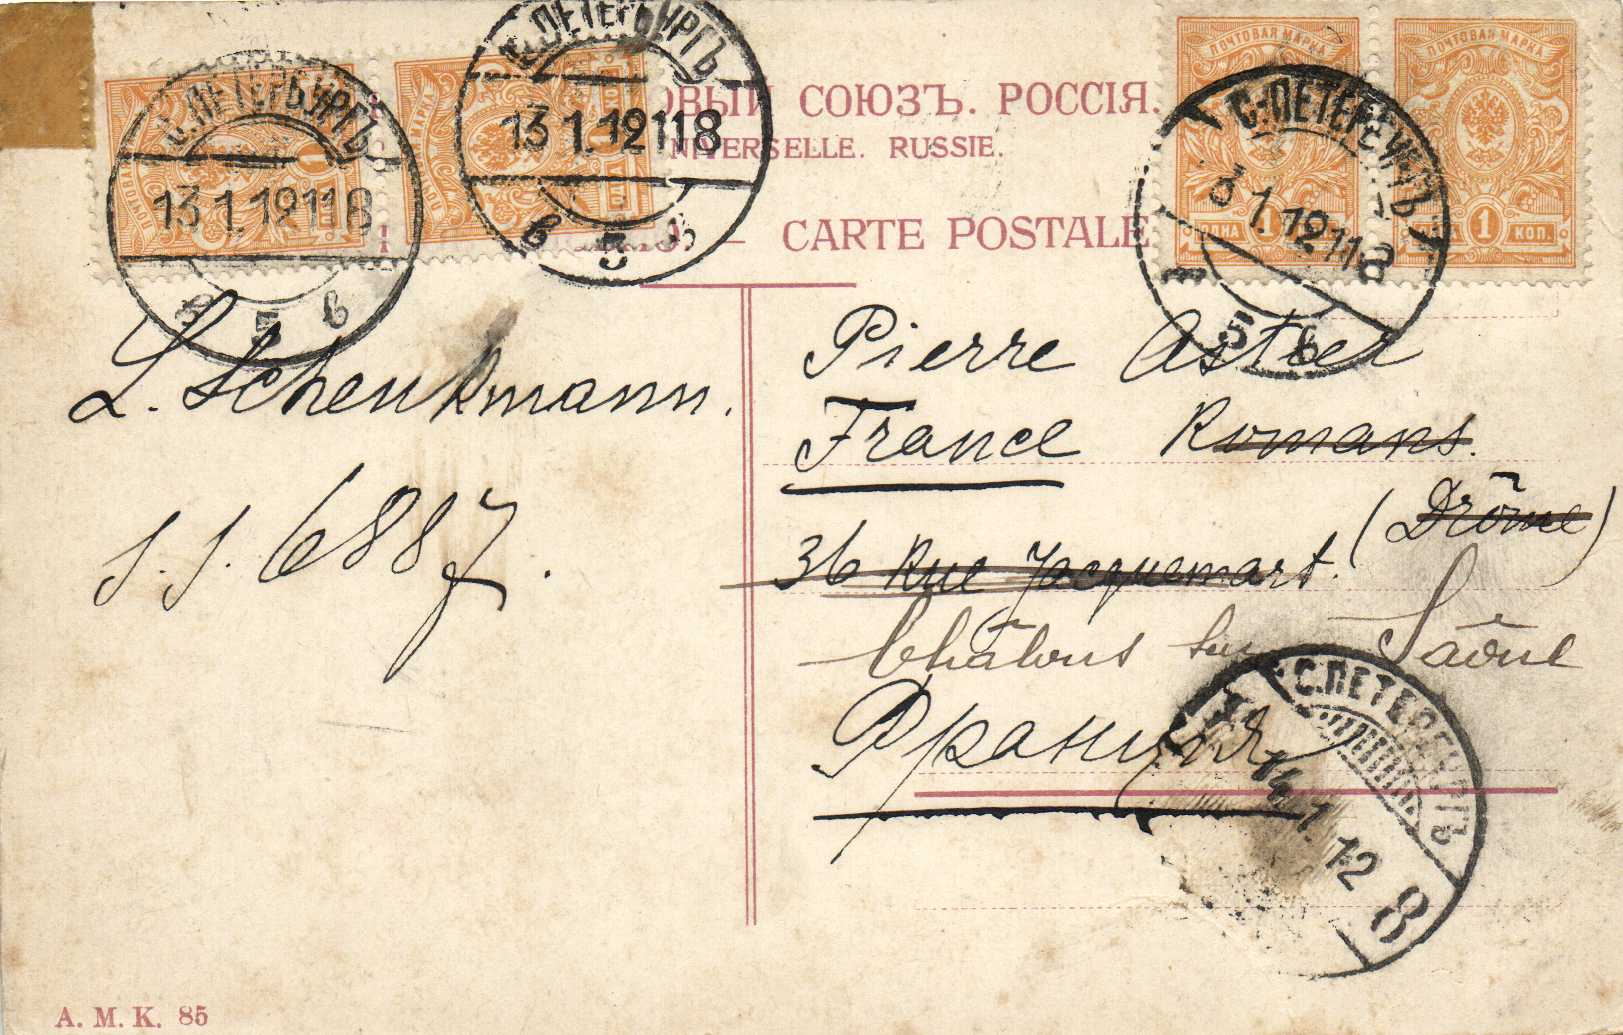 ОВЫЙ СОЮЗЪ. РОССІЯ.
NIVERSELLE. RUSSIE.
CARTE POSTALE
С.ПЕТЕРБУРГЪ
13 1.12 11 8
в 5 в
С.ПЕТЕРБУРГЪ
13 1.12 11 8
в 5 в
ПОЧТОВАЯ МАРКА
ОДНА 1
ПОЧТОВАЯ МАРКА
1 КОП.
С.ПЕТЕРБУРГЪ
3 1.12 11 8
5 в
L. Schenkmann.
s.s. 6887.
Pierre Astier
France Romans.
(Drôme)
36 Rue Jacquemart.
Châlons sur Saône
Франція
С.ПЕТЕРБУРГЪ
14 1 12
8
А. М. К. 85